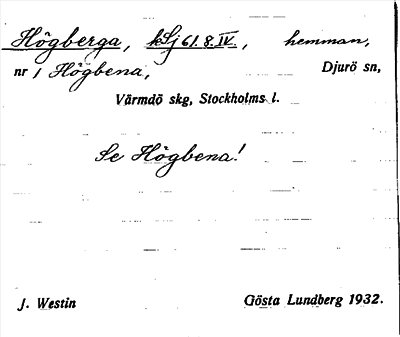 Högberga, kSj 61. 8. IV., hemman,
nr 1 Högbena, Djurö sn,
Värmdö skg, Stockholms l.
Se Högbena!
J. Westin Gösta Lundberg 1932.